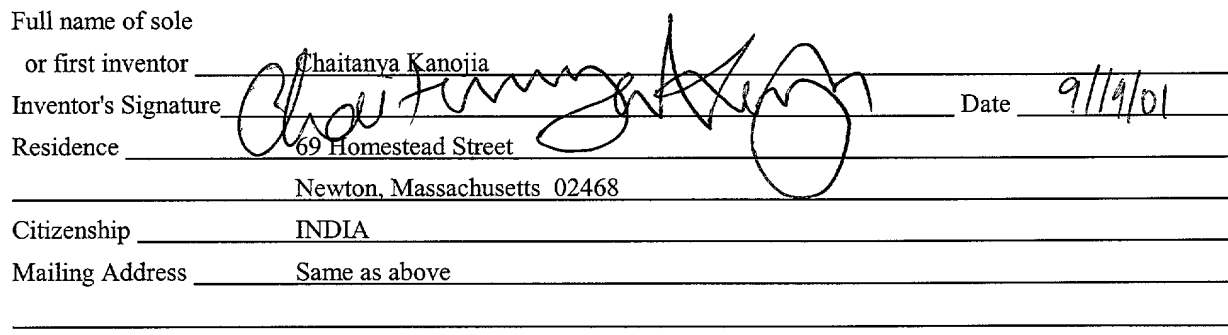 Full name of sole
or first inventor Chaitanya Kanojia
Inventor's Signature Chaitanya Kanojia Date 9/19/01
Residence 69 Homestead Street
Newton, Massachusetts 02468
Citizenship INDIA
Mailing Address Same as above